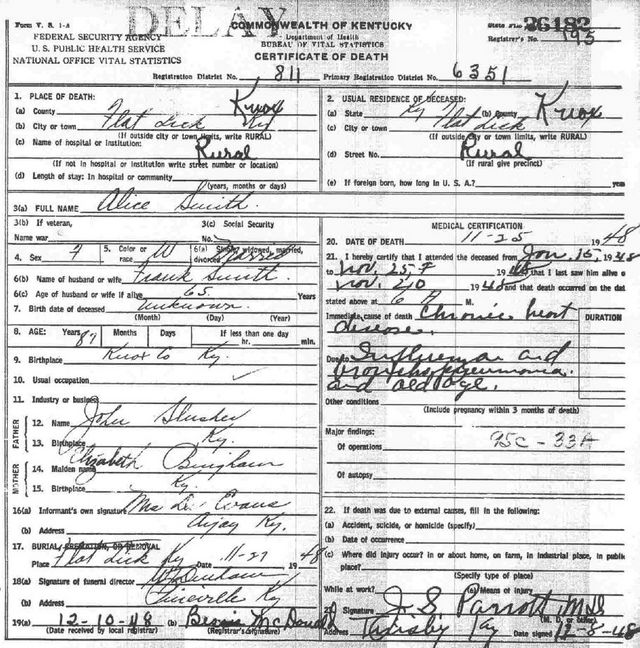 DELAY
Form V. S. 1-A
FEDERAL SECURITY AGENCY
U. S. PUBLIC HEALTH SERVICE
NATIONAL OFFICE VITAL STATISTICS
COMMONWEALTH OF KENTUCKY
Department of Health
BUREAU OF VITAL STATISTICS
CERTIFICATE OF DEATH
State File No. 26182
Registrar's No. 195
Registration District No. 811 Primary Registration District No. 6351
1. PLACE OF DEATH:
(a) County Knox
(b) City or town Flat Lick Ky
(If outside city or town limits, write RURAL)
(c) Name of hospital or institution: Rural
(If not in hospital or institution write street number or location)
(d) Length of stay: In hospital or community
(years, months or days)
2. USUAL RESIDENCE OF DECEASED:
(a) State Ky (b) County Knox
(c) City or town Flat Lick
(If outside city or town limits, write RURAL)
(d) Street No. Rural
(If rural give precinct)
(e) If foreign born, how long in U. S. A.? years
3(a) FULL NAME Alice Smith
3(b) If veteran,
Name war
3(c) Social Security
No.
4. Sex F 5. Color or race W 6(a) Single, widowed, married, divorced Married
6(b) Name of husband or wife Frank Smith
6(c) Age of husband or wife if alive 65 Years
7. Birth date of deceased unknown
(Month) (Day) (Year)
8. AGE: Years 87 Months Days If less than one day
hr. min.
9. Birthplace Knox Co Ky.
10. Usual occupation
11. Industry or business
FATHER
12. Name John Slusher
13. Birthplace Ky.
MOTHER
14. Maiden name Elizabeth Bingham
15. Birthplace Ky.
16(a) Informant's own signature Evans
(b) Address Arjay Ky.
17. BURIAL, CREMATION, OR REMOVAL
Place Flat Lick Ky Date 11-27 1948
18(a) Signature of funeral director
(b) Address Pineville Ky
19(a) 12-10-48 (b) Bessie McDonald
(Date received by local registrar) (Registrar's signature)
MEDICAL CERTIFICATION
20. DATE OF DEATH 11-25 1948
21. I hereby certify that I attended the deceased from Jan. 15, 1948
to Nov. 25 1948 that I last saw him alive on
Nov. 20 1948 and that death occurred on the date
stated above at 6 A M.
Immediate cause of death Chronic heart
disease.
DURATION
Due to Influenza and
bronchopneumonia
and old age.
Other conditions
(Include pregnancy within 3 months of death)
Major findings:
Of operations 95c-33A
Of autopsy
22. If death was due to external causes, fill in the following:
(a) Accident, suicide, or homicide (specify)
(b) Date of occurrence
(c) Where did injury occur? in or about home, on farm, in industrial place, in public
place?
(Specify type of place)
While at work? (e) Means or injury
23. Signature J. S. Parrott MD
(M. D. or other)
Address Date signed 12-8-48